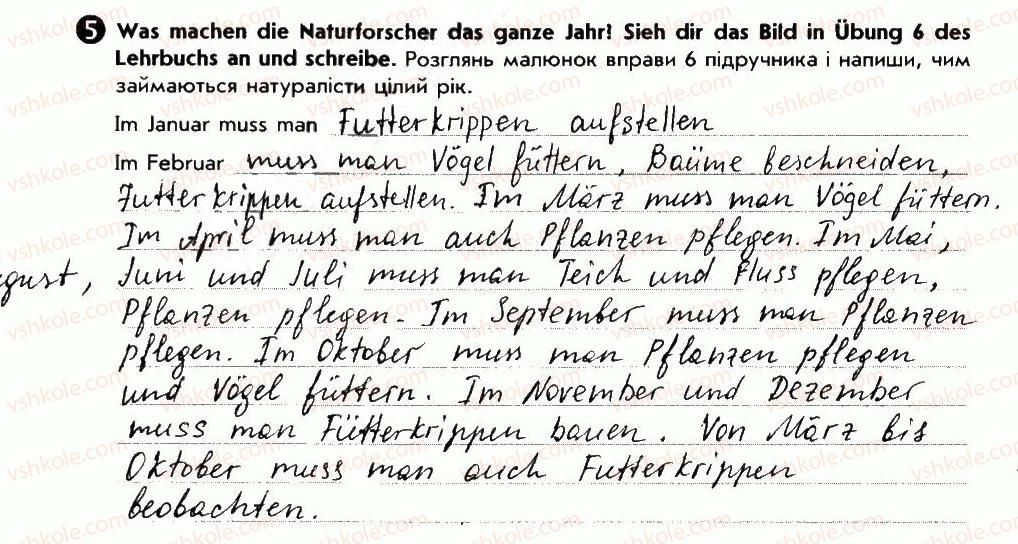 5 Was machen die Naturforscher das ganze Jahr! Sieh dir das Bild in Übung 6 des
Lehrbuchs an und schreibe. Розглянь малюнок вправи 6 підручника і напиши, чим
займаються натуралісти цілий рік.
Im Januar muss man Futterkrippen aufstellen
Im Februar muss man Vögel füttern, Baüme beschneiden,
Futterkrippen aufstellen. Im März muss man Vögel füttern.
Im April muss man auch Pflanzen pflegen. Im Mai,
gust, Juni und Juli muss man Teich und Fluss pflegen,
Pflanzen pflegen. Im September muss man Pflanzen
pflegen. Im Oktober muss man Pflanzen pflegen
und Vögel füttern. Im November und Dezember
muss man Fütterkrippen bauen. Von März bis
Oktober muss man auch Futterkrippen
beobachten.